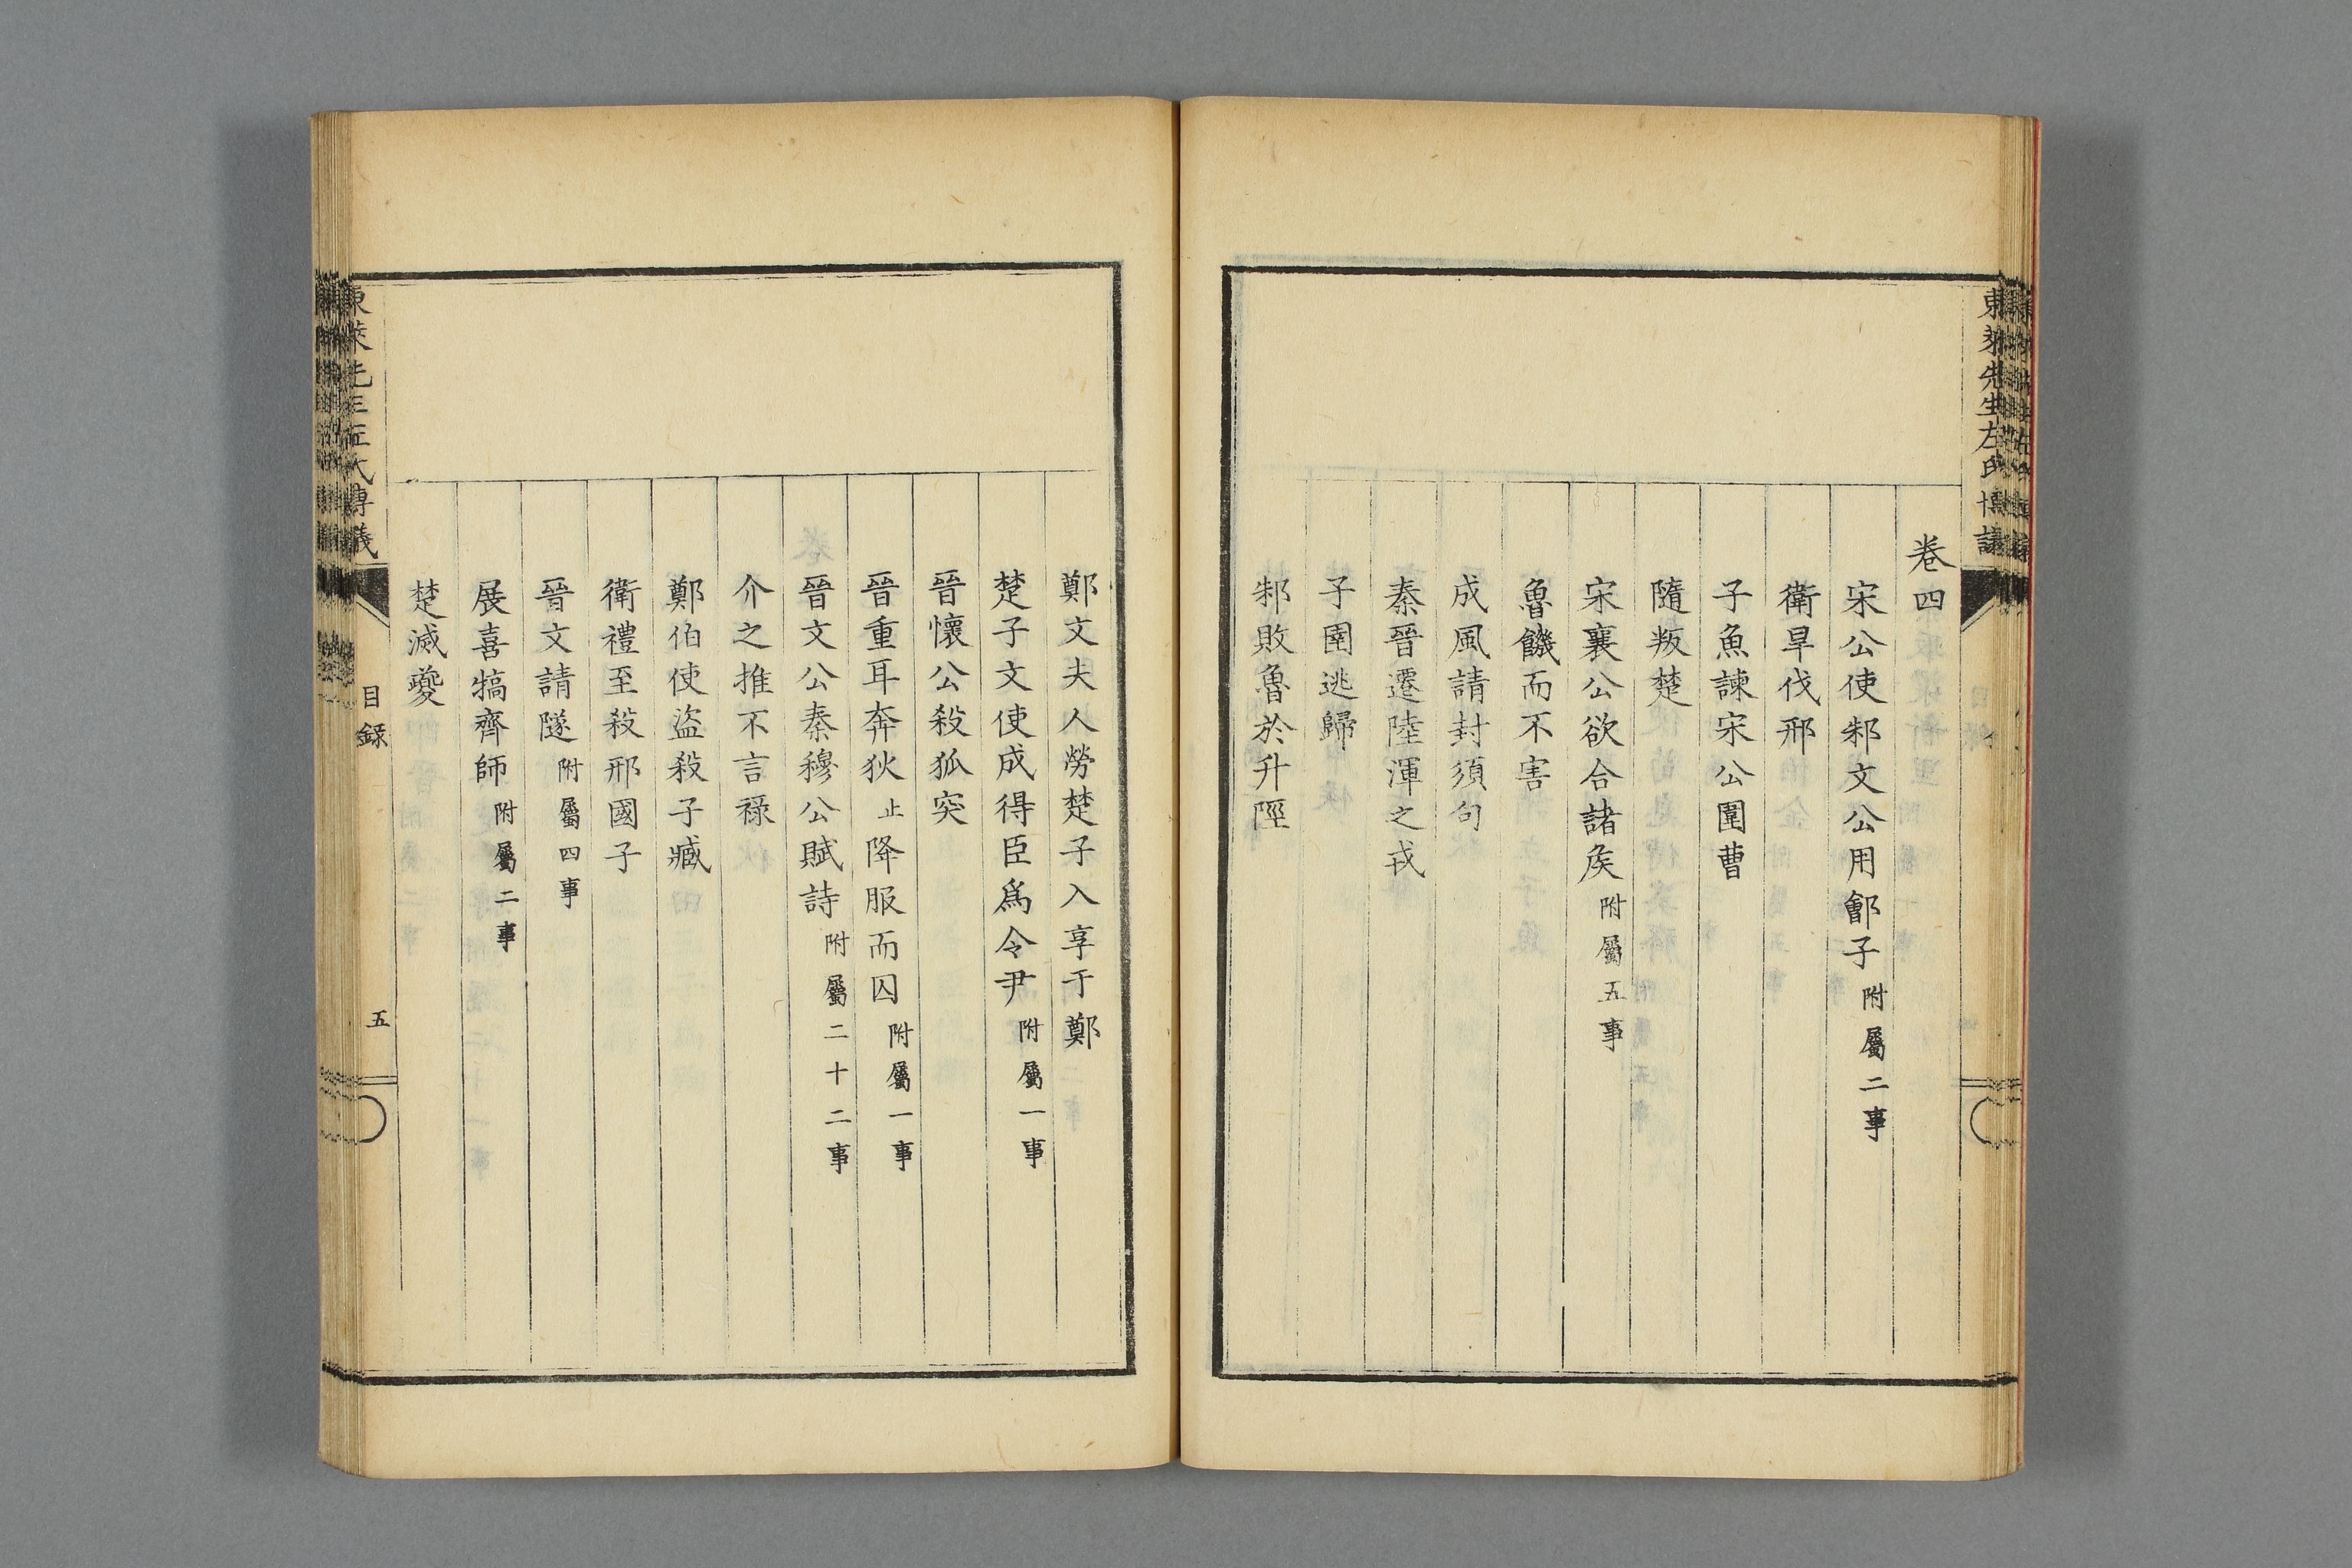 東萊先生左氏博議
卷四
宋公使邾文公用鄫子附屬二事
衛旱伐邢
子魚諫宋公圍曹
隨叛楚
宋襄公欲合諸矦附屬五事
魯饑而不害
成風請封須句
秦晉遷陸渾之戎
子圉逃歸
邾敗魯於升陘
鄭文夫人勞楚子入享于鄭
楚子文使成得臣爲令尹附屬一事
晉懷公殺狐突
晉重耳奔狄止降服而囚附屬一事
晉文公秦穆公賦詩附屬二十二事
介之推不言祿
鄭伯使盜殺子臧
衛禮至殺邢國子
晉文請隧附屬四事
展喜犒齊師附屬二事
楚滅夔
東萊先生左氏博議
目錄
五